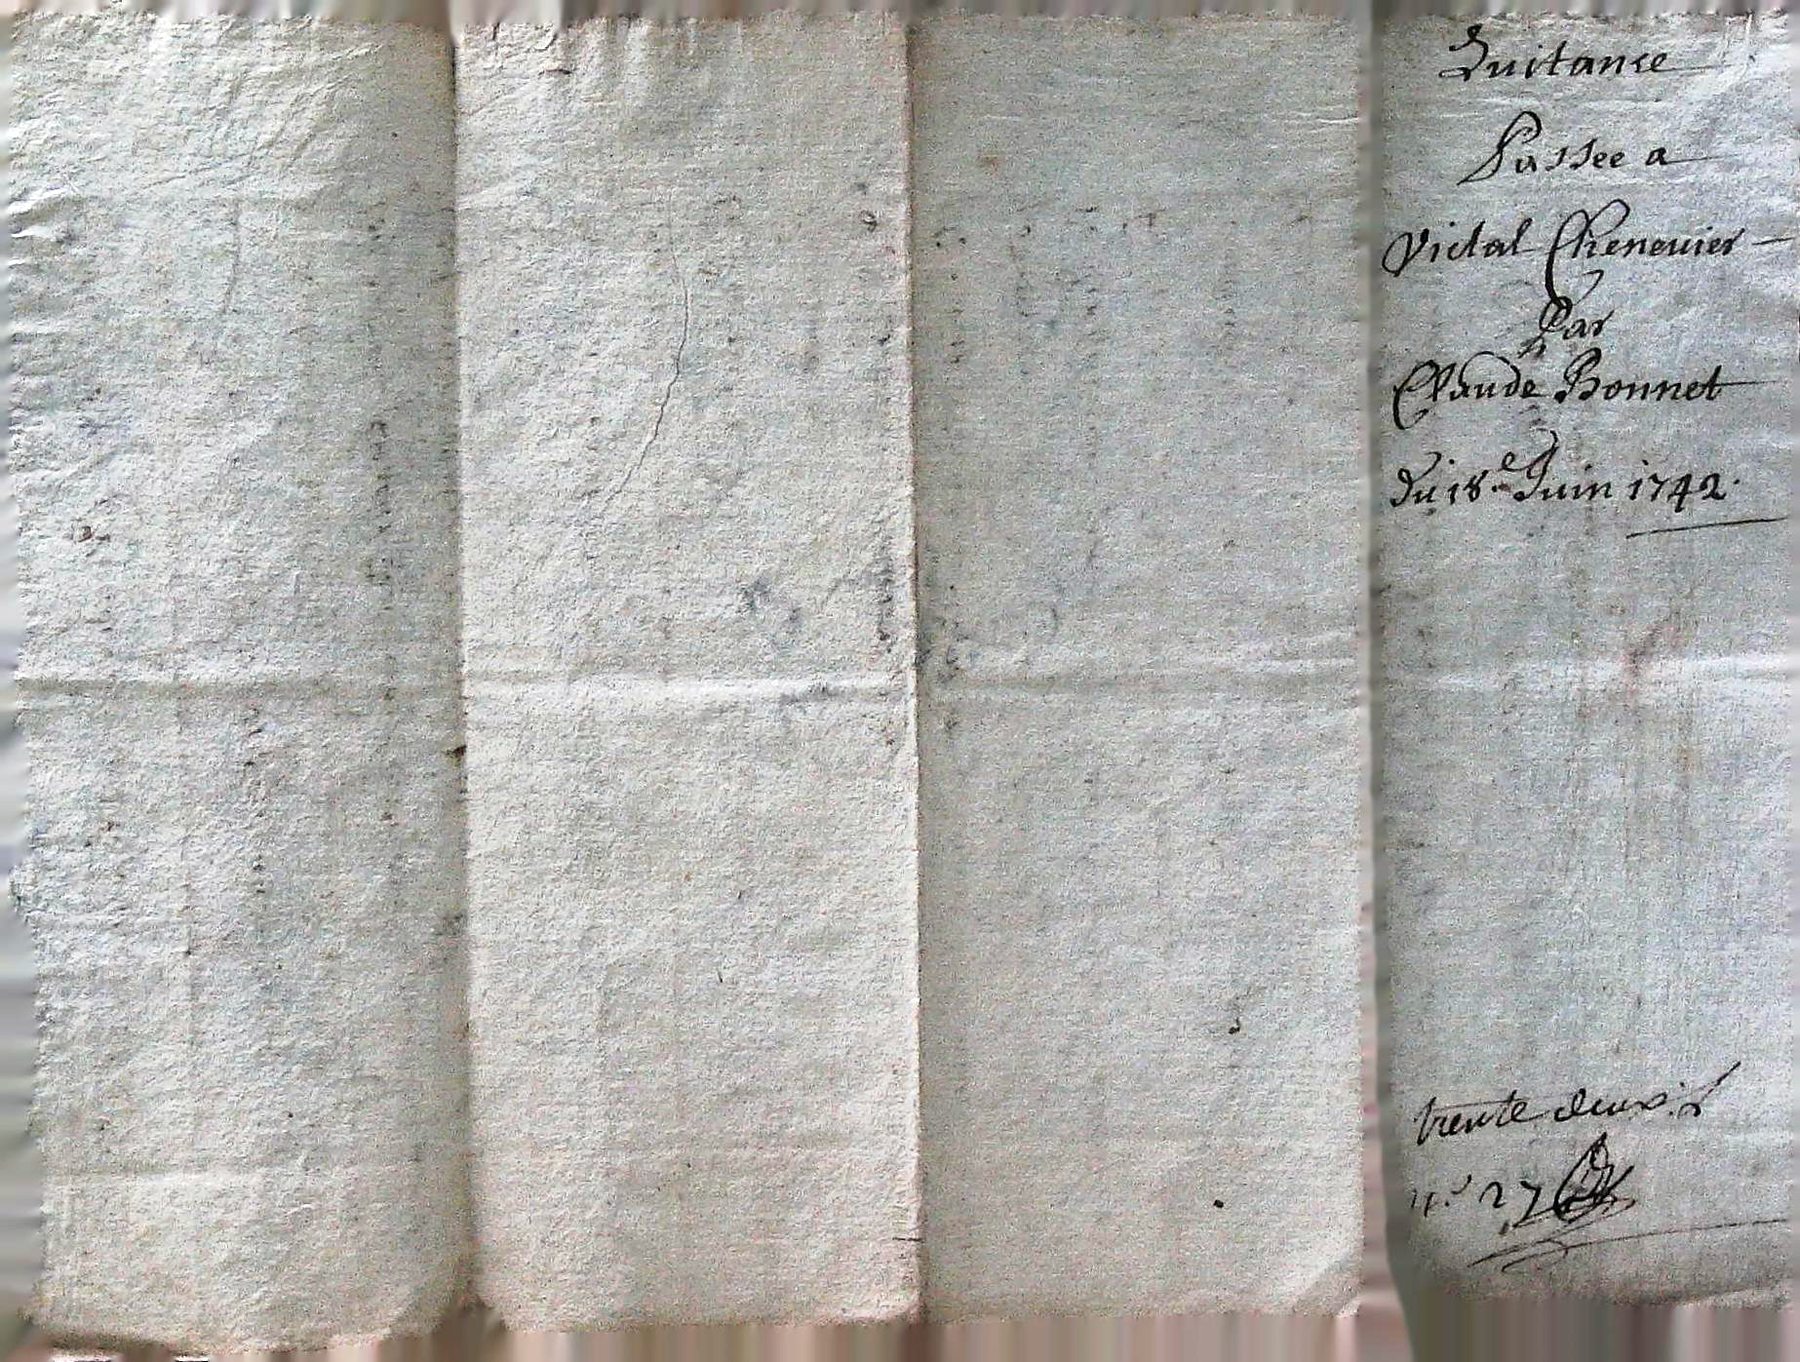 Quitance
Passee a
Vidal Chenevier
Par
Claude Bonnet
du 18e Juin 1742.
trente deux
n.° 27